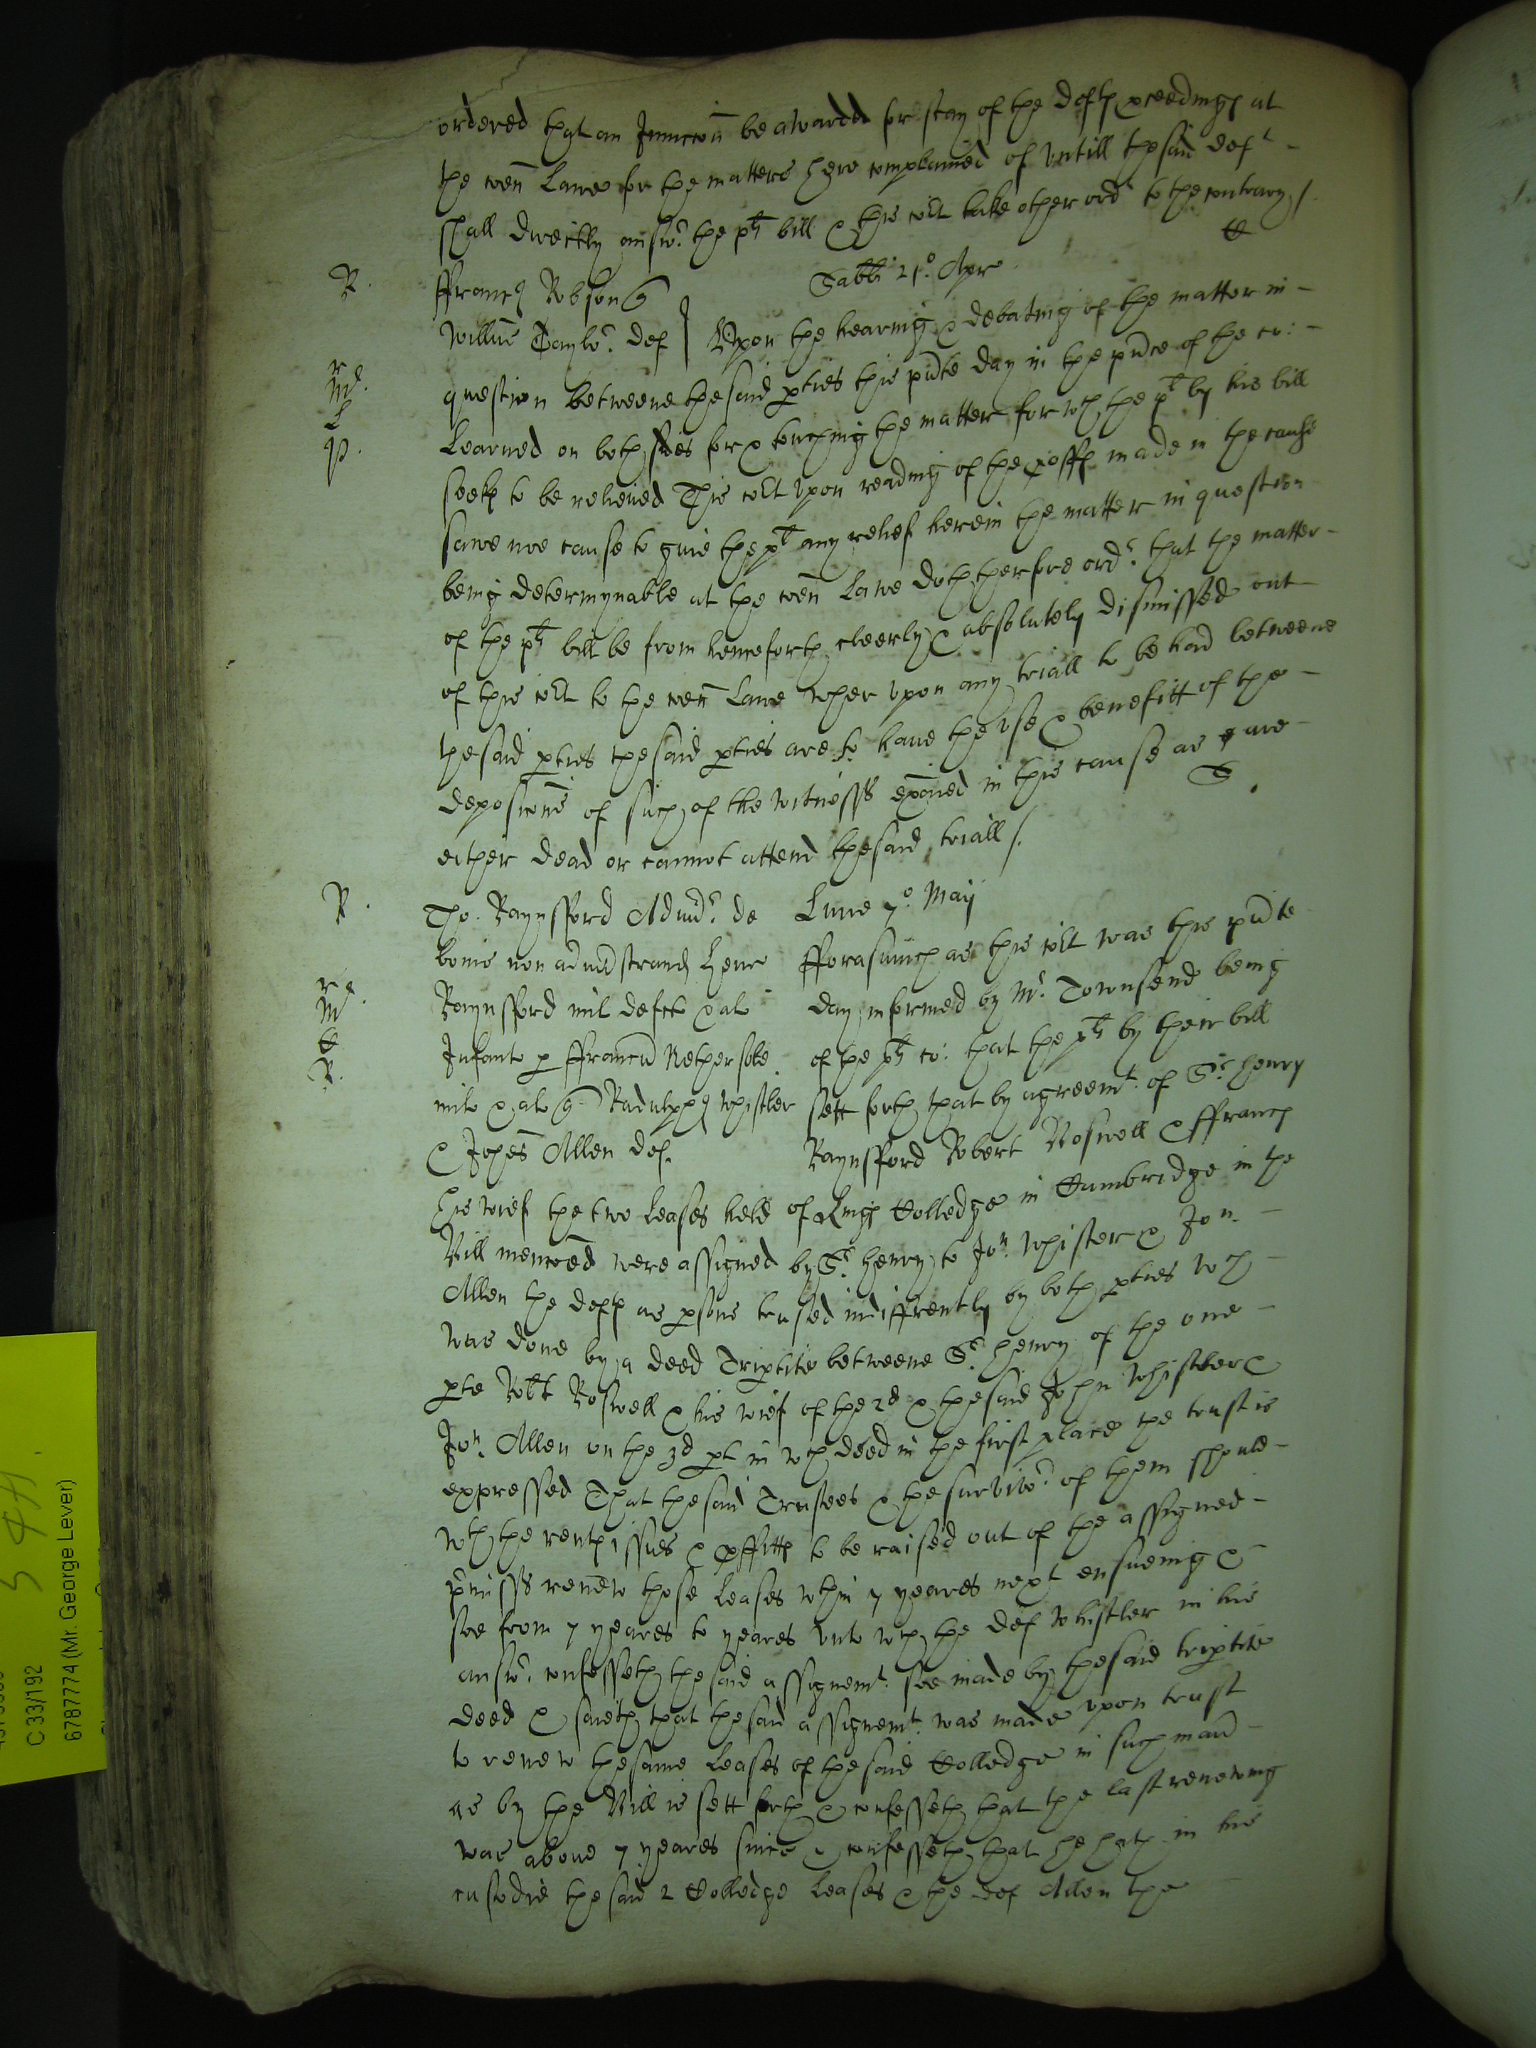 ordered that an Iniunccōn be awarded for stay of the defts proceedings at
the coen Lawe for the matters here complained of vntill the said deft
shall directly answr the plts bill & this cort take other ordr to the contrary /.
R. Sabbi 21o Apr
ffranc Robson q
Willm Taylor def } Vpon the hearing & debating of the matter in
question betweene the said pties this pnte day in the pnce of the co:
Learned on both sides for & touching the matter for wch the plt by his bill
seeks to be releived This cort vpon reading of the proffs made in the cause
sawe noe cause to giue the plt any relief herein the matter in question
being determynable at the coen Lawe doth therfore ordr that the matter
of the plts bill be from henceforth cleerly & absolutely dismissed out
of this cort to the coen Lawe wher vpon any triall to be had betweene
the said pties the said pties are to haue the vse & benefitt of the
deposicōns of such of the witnesss exōied in this cause as are
either dead or cannot attend the said triall /.
R. Tho. Raynsford Admr de Lune 7o Maij
bonis non admstrand Henr fforasmuch as this cort was this pnte
Raynsford mil defct & al day informed by Mr Townsend being
Infant p ffrancu Nethersole of the plts co: that the plts by their bill
mil & al q Radulph Whistler sett forth that by agreemt of Sir Henry
& Johes Allen def. Raynsford Robert Boswell & ffranc
his wief the two leases held of Kings Colledge in Cambridge in the
Bill mencōed were assigned by Sr Henry to Jon Whister & Jon
Allen the defts as psons trusted indiffrently by both pties wch
was done by a deed Triptite betweene Sr Henry of the one
pte Robt Boswell & his wief of the 2d & the said John Whistler &
Jon Allen on the 3d pt in wch deed in the first place the trust is
expressed That the said Trustees & the survivor of them should
wth the rents issues & proffitts to be raised out of the assigned
p̄misss renew those leases wthin 7 yeares next ensueing &
soe from 7 yeares to yeares vnto wch the def Whistler in his
answr confesseth the said assignemt soe made by the said triptite
deed & saieth that the said assignemt was made vpon trust
to renew the same leases of the said Colledge in such man̄
as by the Bill is sett forth & confesseth that the last renewing
was aboue 7 yeares since & confesseth that he hath in his
custodie the said 2 Colledge leases & the def Allen the
C 33/192
6787774 (Mr. George Lever)